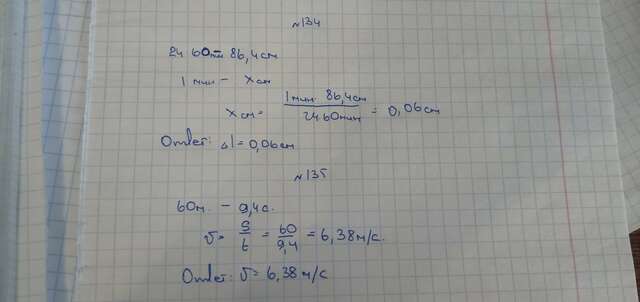 №134
24 60мин 86,4см
1 мин - x см
x см = 1 мин · 86,4см / 24 60мин = 0,06см
Ответ: Δl = 0,06см
№135
60м. - 9,4с.
v = S/t = 60/9,4 = 6,38м/с.
Ответ: v = 6,38 м/с